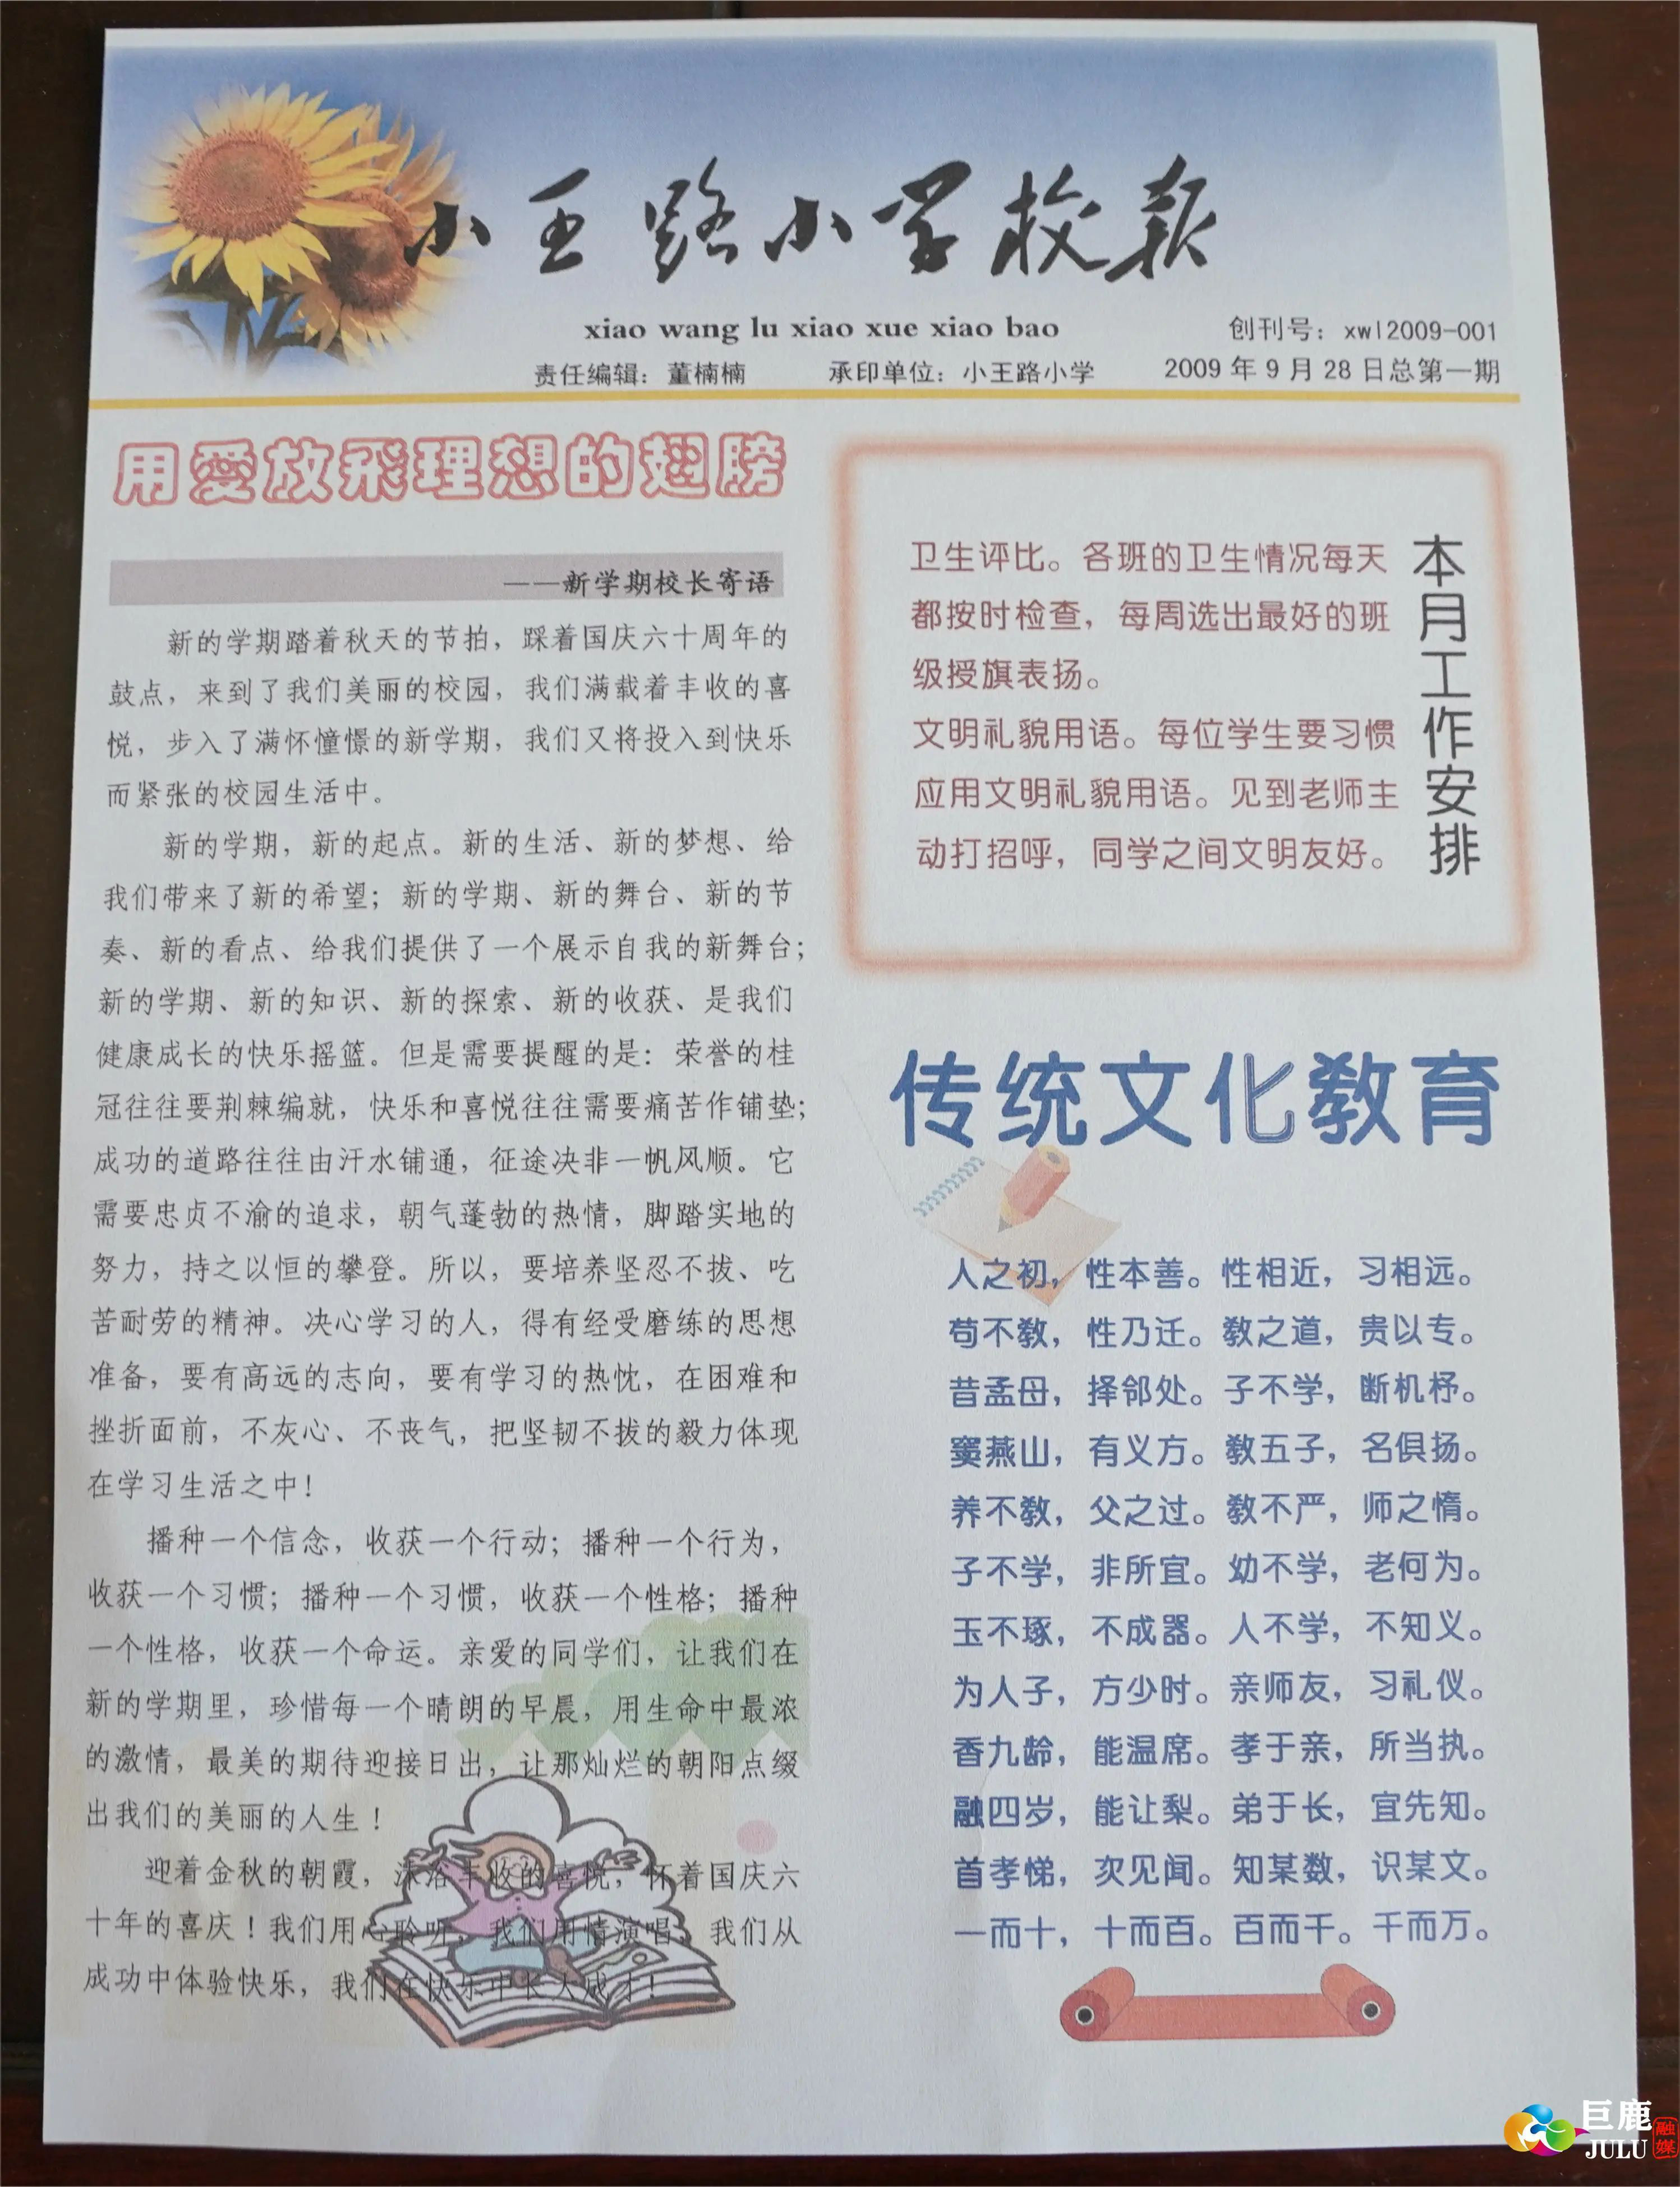 小王路小学校报
xiao wang lu xiao xue xiao bao
创刊号：xwl2009-001
责任编辑：董楠楠
承印单位：小王路小学
2009年9月28日总第一期
用爱放飞理想的翅膀
——新学期校长寄语
新的学期踏着秋天的节拍，踩着国庆六十周年的
鼓点，来到了我们美丽的校园，我们满载着丰收的喜
悦，步入了满怀憧憬的新学期，我们又将投入到快乐
而紧张的校园生活中。
新的学期，新的起点。新的生活、新的梦想、给
我们带来了新的希望；新的学期、新的舞台、新的节
奏、新的看点、给我们提供了一个展示自我的新舞台；
新的学期、新的知识、新的探索、新的收获、是我们
健康成长的快乐摇篮。但是需要提醒的是：荣誉的桂
冠往往要荆棘编就，快乐和喜悦往往需要痛苦作铺垫；
成功的道路往往由汗水铺通，征途决非一帆风顺。它
需要忠贞不渝的追求，朝气蓬勃的热情，脚踏实地的
努力，持之以恒的攀登。所以，要培养坚忍不拔、吃
苦耐劳的精神。决心学习的人，得有经受磨练的思想
准备，要有高远的志向，要有学习的热忱，在困难和
挫折面前，不灰心、不丧气，把坚韧不拔的毅力体现
在学习生活之中！
播种一个信念，收获一个行动；播种一个行为，
收获一个习惯；播种一个习惯，收获一个性格；播种
一个性格，收获一个命运。亲爱的同学们，让我们在
新的学期里，珍惜每一个晴朗的早晨，用生命中最浓
的激情，最美的期待迎接日出，让那灿烂的朝阳点缀
出我们的美丽的人生！
迎着金秋的朝霞，沐浴丰收的喜悦，怀着国庆六
十年的喜庆！我们用心聆听，我们用情演唱，我们从
成功中体验快乐，我们在快乐中长大成才！
本月工作安排
卫生评比。各班的卫生情况每天
都按时检查，每周选出最好的班
级授旗表扬。
文明礼貌用语。每位学生要习惯
应用文明礼貌用语。见到老师主
动打招呼，同学之间文明友好。
传统文化教育
人之初，性本善。性相近，习相远。
苟不教，性乃迁。教之道，贵以专。
昔孟母，择邻处。子不学，断机杼。
窦燕山，有义方。教五子，名俱扬。
养不教，父之过。教不严，师之惰。
子不学，非所宜。幼不学，老何为。
玉不琢，不成器。人不学，不知义。
为人子，方少时。亲师友，习礼仪。
香九龄，能温席。孝于亲，所当执。
融四岁，能让梨。弟于长，宜先知。
首孝悌，次见闻。知某数，识某文。
一而十，十而百。百而千。千而万。
巨鹿
JULU
融媒